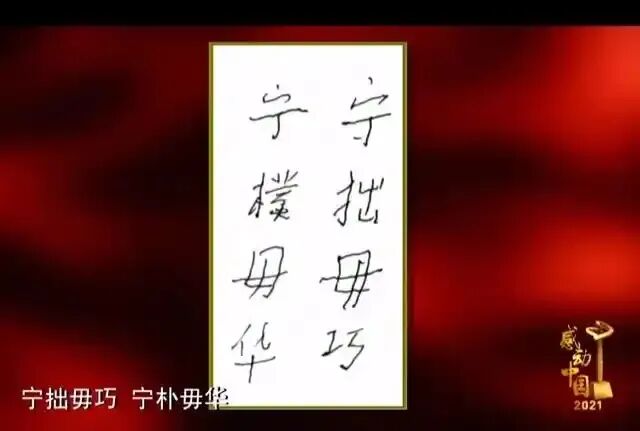 宁拙毋巧
宁樸毋华
宁拙毋巧 宁朴毋华
感动中国
2021